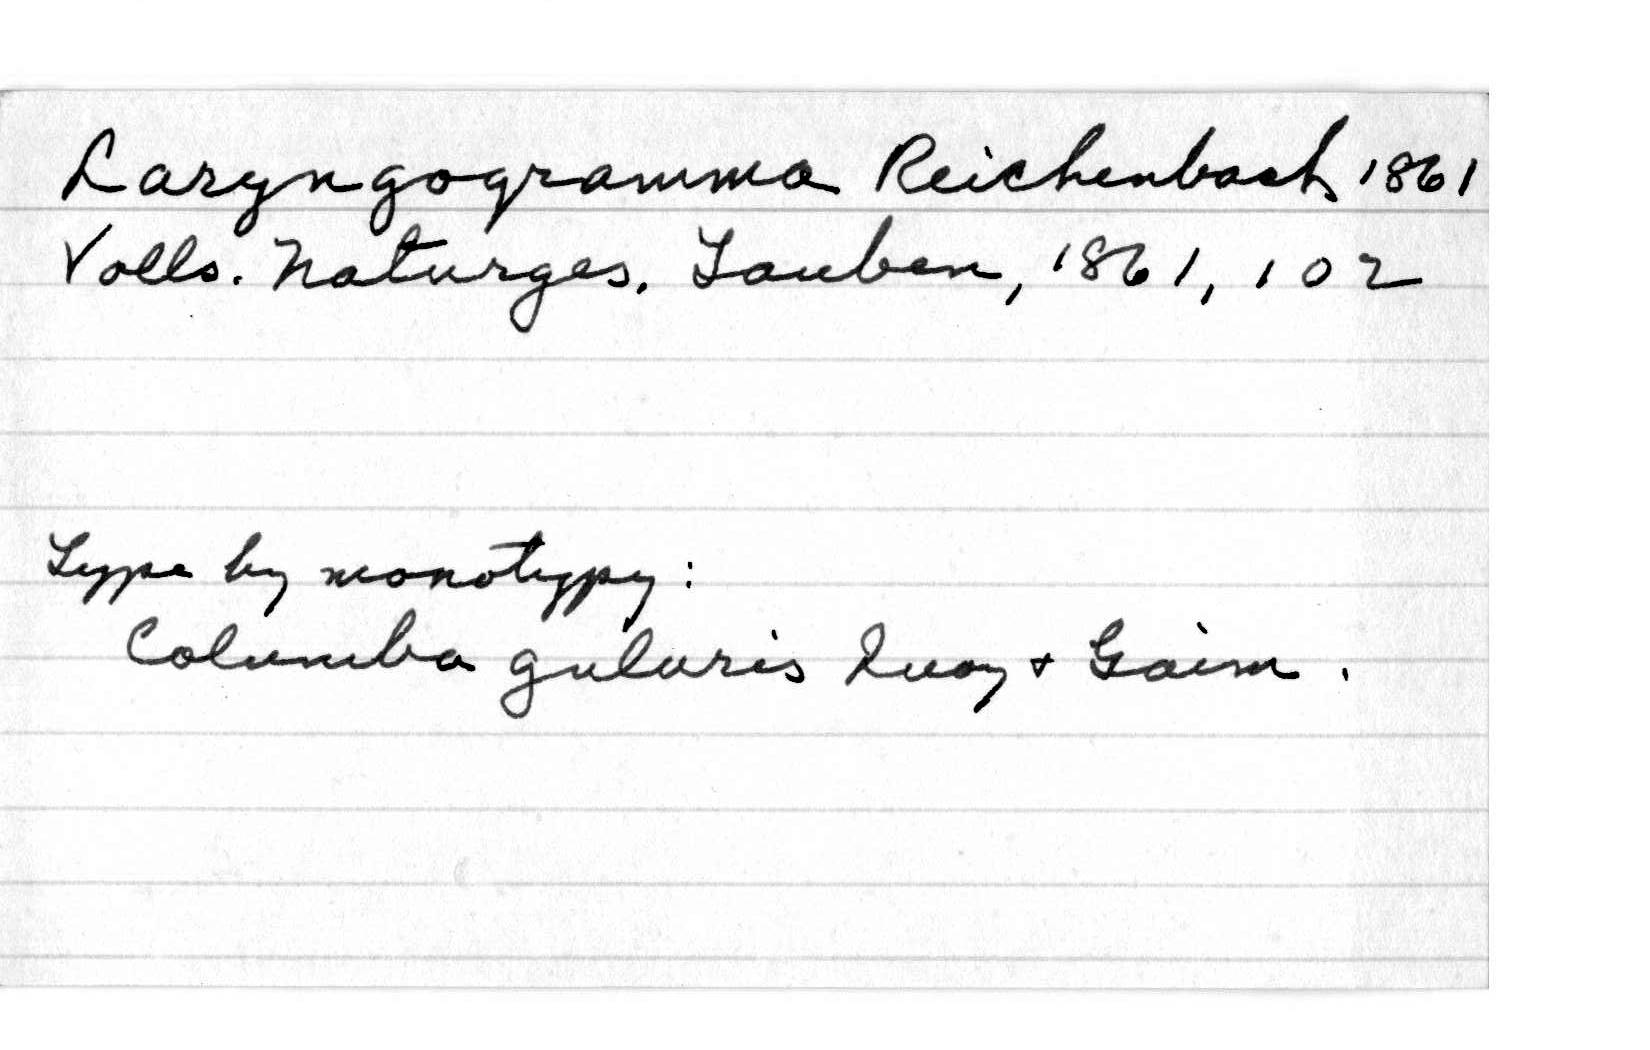 Laryngogramma Reichenbach 1861
Volls. Naturges. Tauben, 1861, 102
Type by monotypy:
Columba gularis Quoy + Gaim.